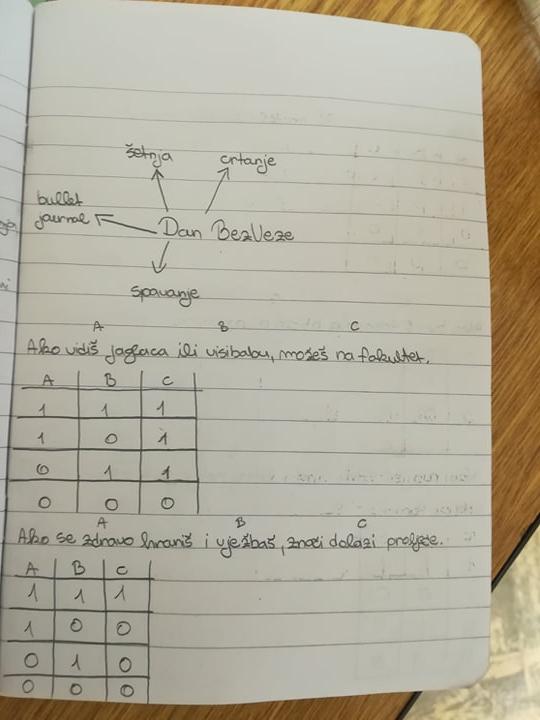 šetnja crtanje
bullet
journal
Dan BezVeze
spavanje
A B C
Ako vidiš jaglaca ili visibabu, možeš na fakultet.
A B C
1 1 1
1 0 1
0 1 1
0 0 0
A B C
Ako se zdravo hraniš i vježbaš, znači dolazi proljeće.
A B C
1 1 1
1 0 0
0 1 0
0 0 0